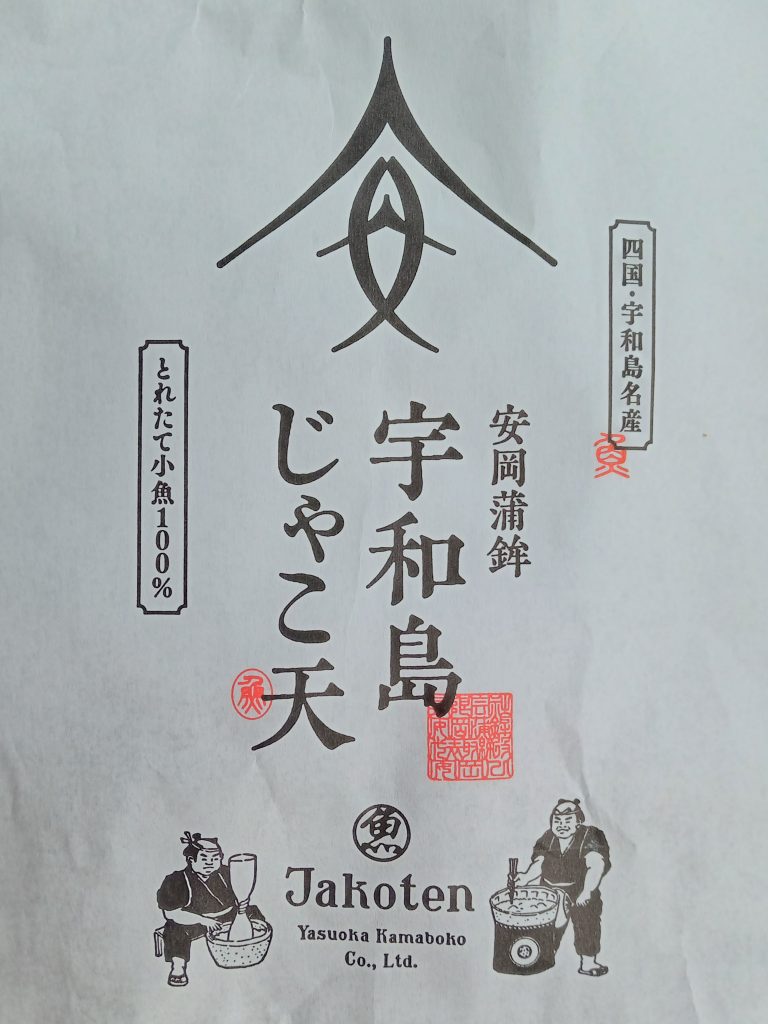 四国・宇和島名産
安岡蒲鉾
宇和島
じゃこ天
とれたて小魚100%
魚
Jakoten
Yasuoka Kamaboko
Co., Ltd.